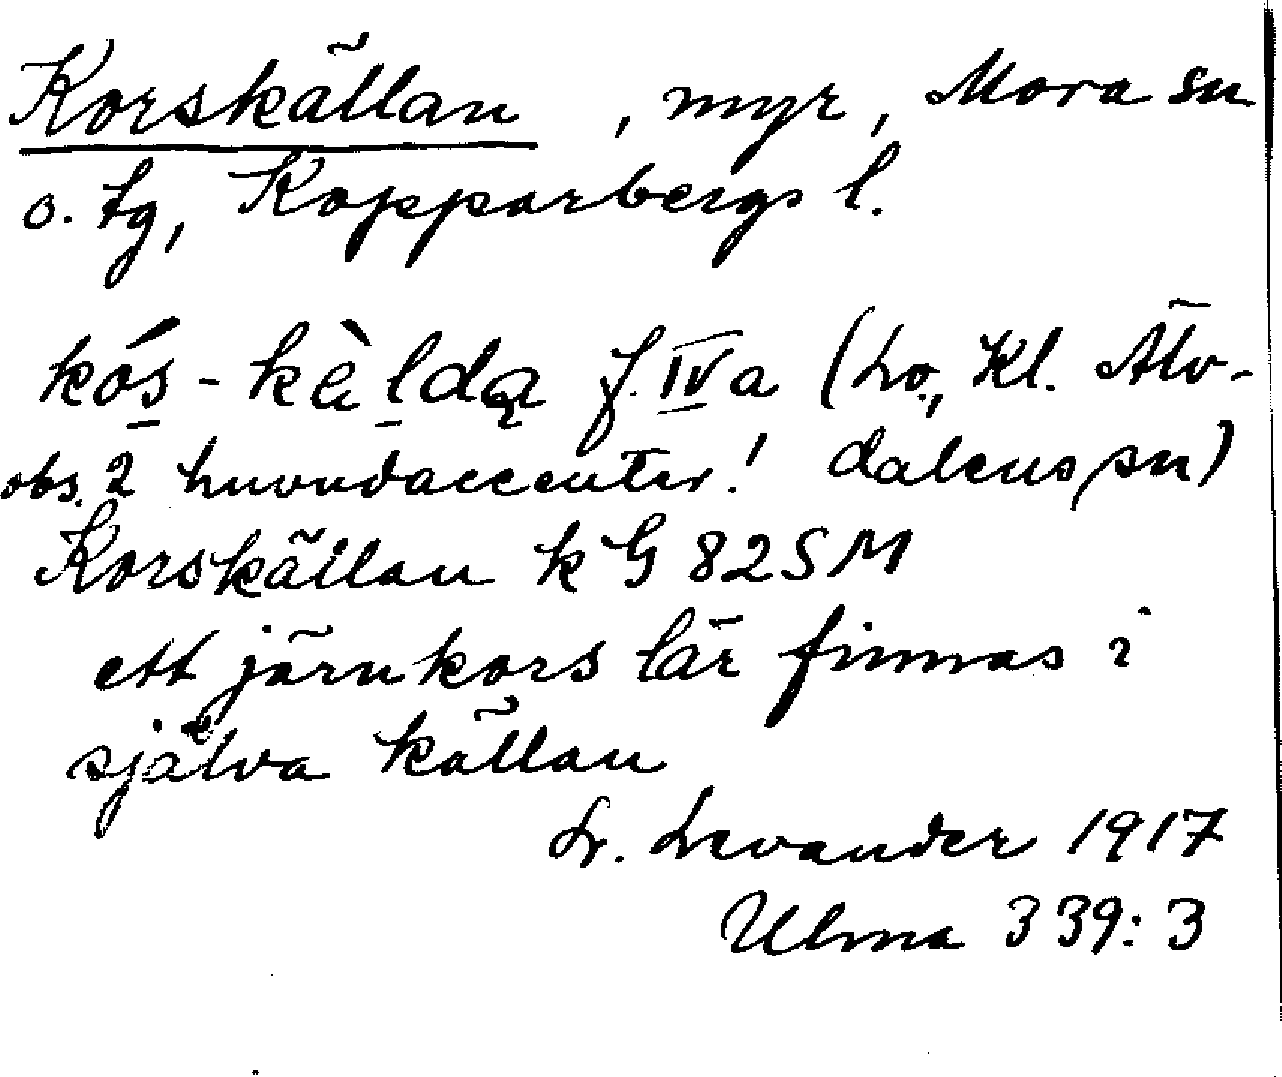 Korskällan, myr, Mora sn
o. tg, Kopparbergs l.
kós-kèldą f. IV a (Lo., Kl. Älv-
obs. 2 huvudaccenter! dalens sn)
Korskällan k G 82 S M
ett järnkors lär finnas i
själva källan
Lr. Levander 1917
Ulma 339:3